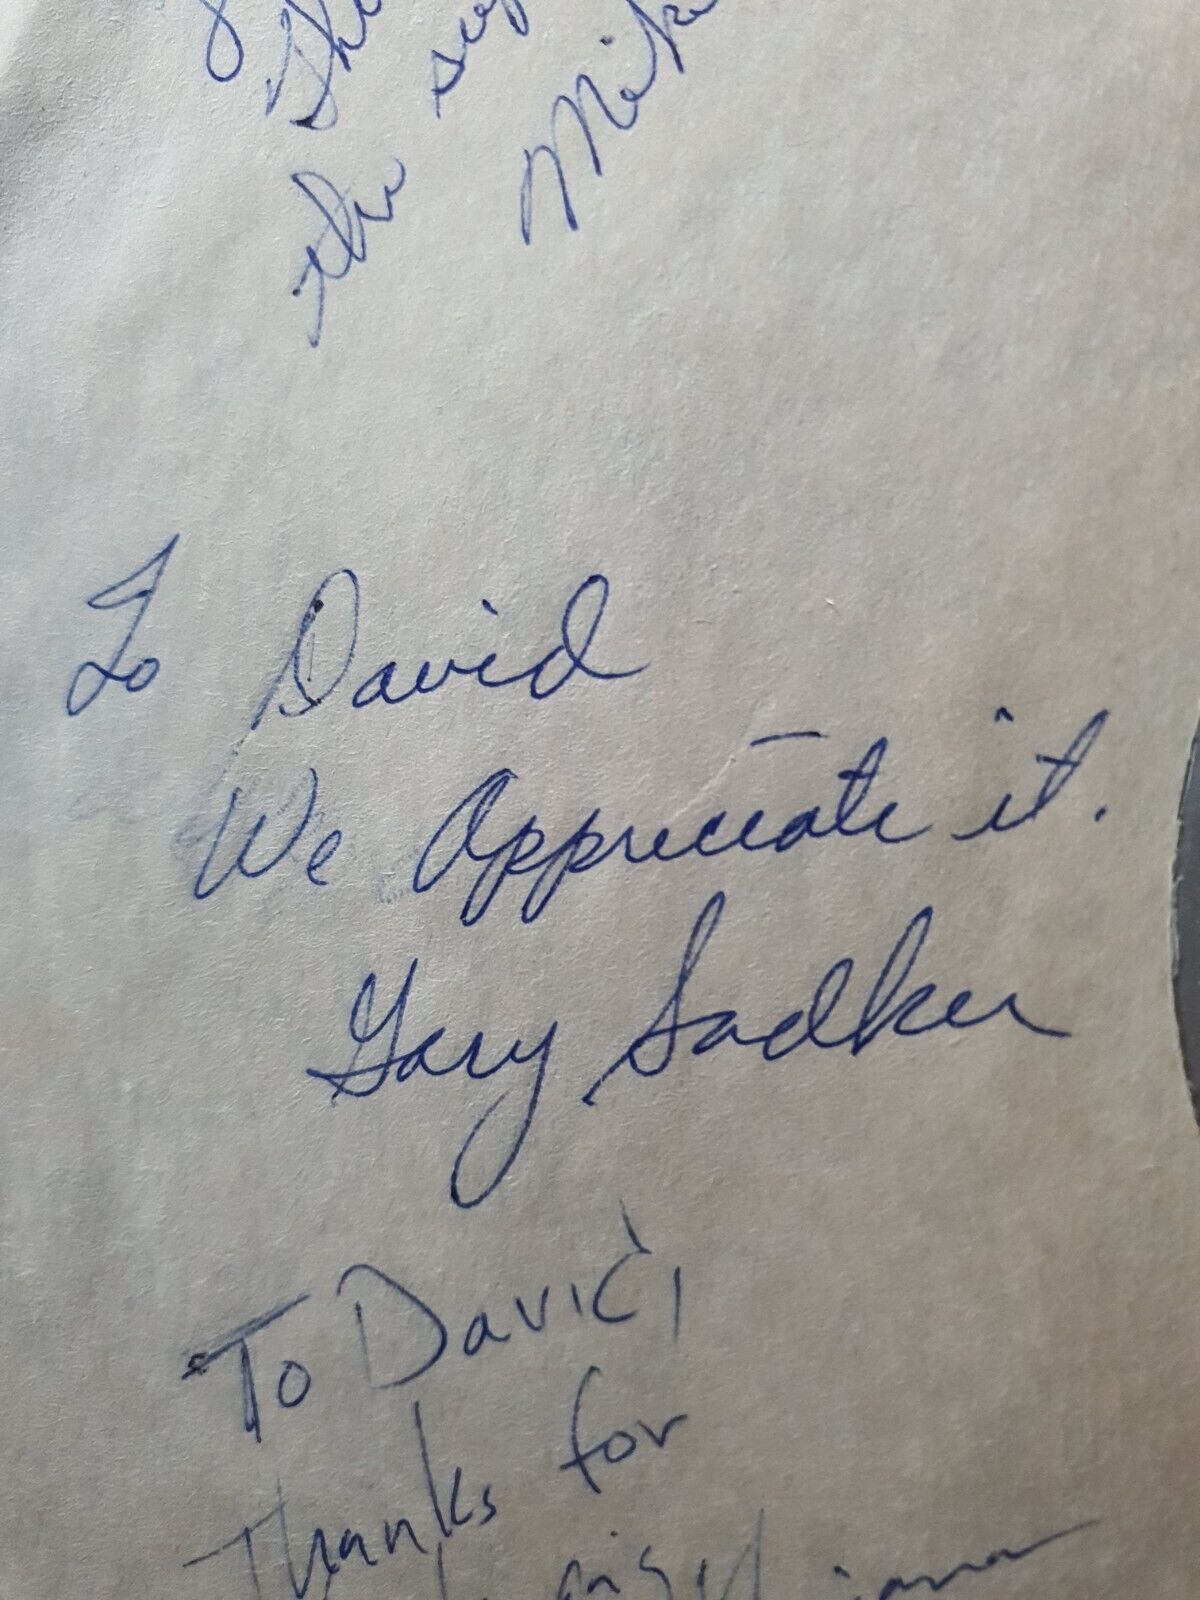 the
Mik
To David
We Appreciate it.
Gary Sadker
To David,
Thanks for